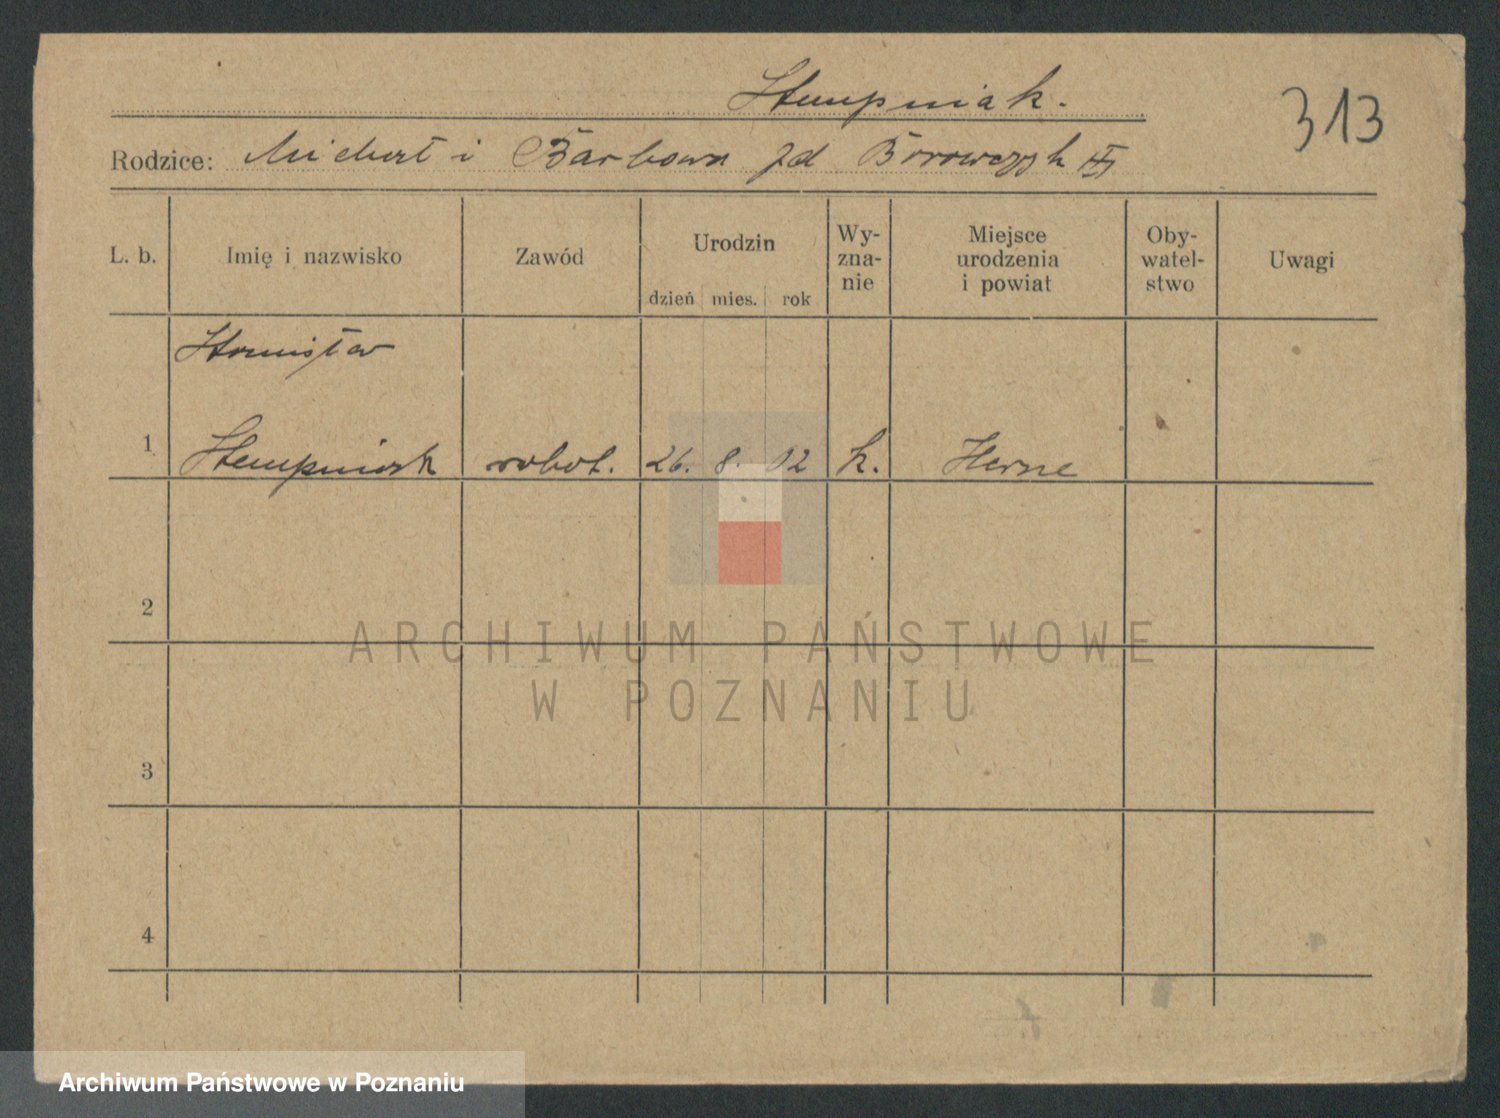 Stempniak.
313
Rodzice: Michał i Barbara zd Borowczyk
L. b. Imię i nazwisko Zawód Urodzin dzień mies. rok Wy-zna-nie Miejsce urodzenia i powiat Oby-watel-stwo Uwagi
Stanisław
1 Stempniak robot. 26. 8. 02 k. Herne
2
ARCHIWUM PAŃSTWOWE
W POZNANIU
3
4
Archiwum Państwowe w Poznaniu